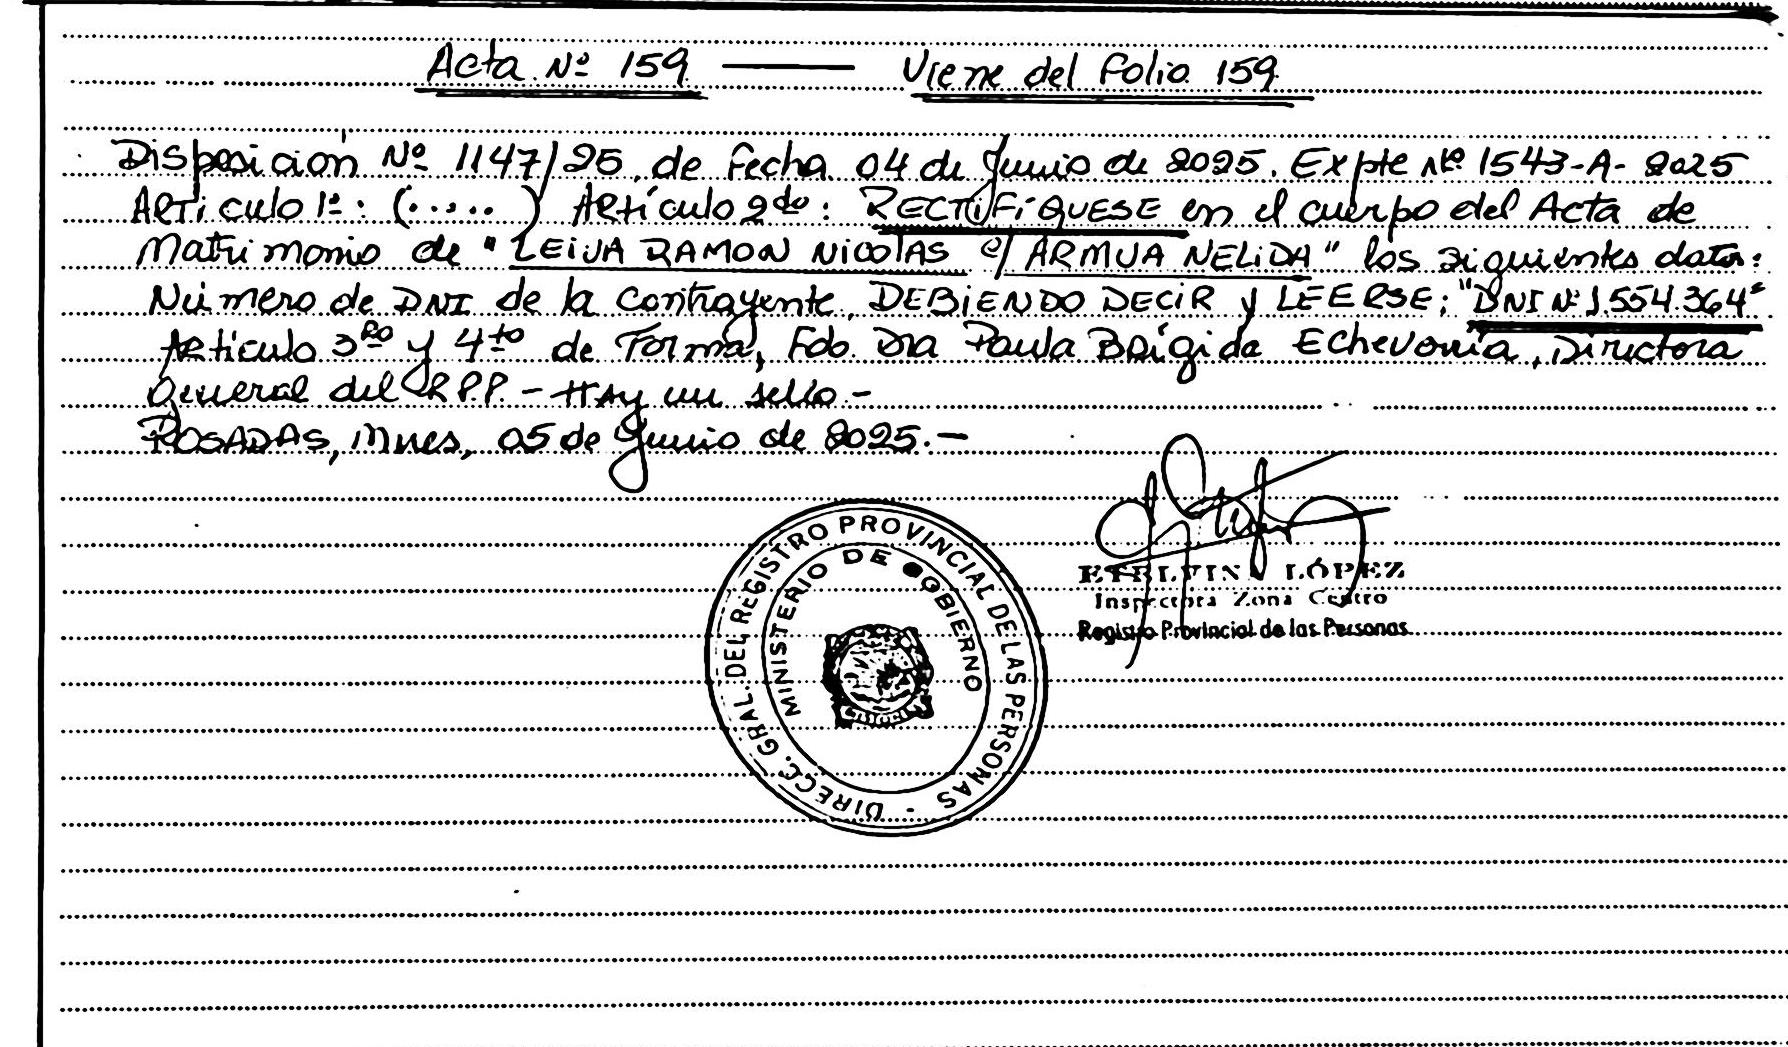 Acta Nº 159 —— Viene del Folio 159
Disposición Nº 1147/25, de Fecha 04 de Junio de 2025. Expte Nº 1543-A-2025
Artículo 1º: (.....) Artículo 2do: RECTIFÍQUESE en el cuerpo del Acta de
Matrimonio de "LEIVA RAMON NICOLAS c/ ARMUA NELIDA" los siguientes datos:
Número de DNI de la contrayente, DEBIENDO DECIR y LEERSE; "DNI Nº 1.554.364"
Artículo 3ro y 4to de Forma, Fdo. Dra Paula Brígida Echeverría, Directora
General del R.P.P. - Hay un sello.-
POSADAS, Mnes, 05 de Junio de 2025.-
DIRECC. GRAL. DEL REGISTRO PROVINCIAL DE LAS PERSONAS -
MINISTERIO DE GOBIERNO
ETELVINA LÓPEZ
Inspectora Zona Centro
Registro Provincial de las Personas